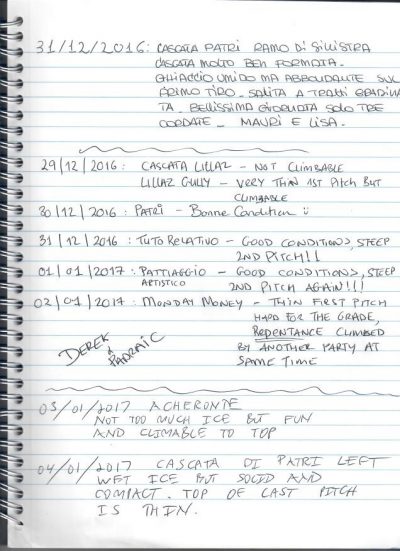 31/12/2016: CASCATA PATRI RAMO DI SINISTRA
CASCATA MOLTO BEN FORMATA.
GHIACCIO UMIDO MA ABBONDANTE SUL
PRIMO TIRO. SALITA A TRATTI GRADINA
TA. BELLISSIMA GIORNATA SOLO TRE
CORDATE - MAURI E LISA.
29/12/2016: CASCATA LILLAZ - NOT CLIMBABLE
LILLAZ GULLY - VERY THIN 1ST PITCH BUT
CLIMBABLE
30/12/2016: PATRI - Bonne Condition
31/12/2016: TUTO RELATIVO - GOOD CONDITIONS, STEEP
2ND PITCH!!
01/01/2017: PATTIAGGIO - GOOD CONDITIONS, STEEP
ARTISTICO 2ND PITCH AGAIN!!!
02/01/2017: MONDAY MONEY - THIN FIRST PITCH
HARD FOR THE GRADE,
REPENTANCE CLIMBED
BY ANOTHER PARTY AT
SAME TIME
DEREK
&
PADRAIC
03/01/2017 ACHERONTE
NOT TOO MUCH ICE BUT FUN
AND CLIMABLE TO TOP
04/01/2017 CASCATA DI PATRI LEFT
WET ICE BUT SOLID AND
COMPACT. TOP OF LAST PITCH
IS THIN.